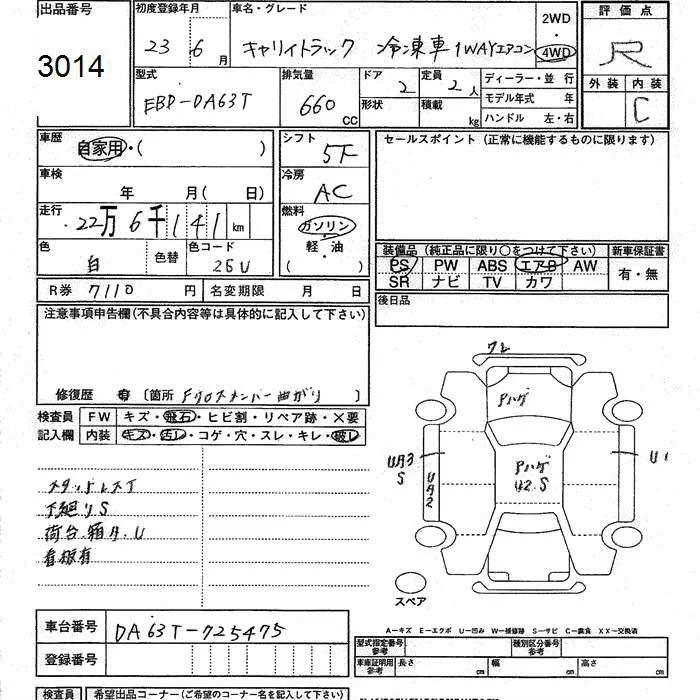 出品番号
3014
初度登録年月
23 6月
車名・グレード
キャリイトラック 冷凍車 1WAYエアコン
2WD
・
4WD
評価点
R
外装 内装
C
型式
EBD-DA63T
排気量
660 CC
ドア
2
形状
定員
2人
積載
kg
ディーラー・並 行
モデル年式 年
ハンドル 左・右
車歴
自家用・( )
車検
年 月( 日)
走行
22万6千141 km
色
白
色替
色コード
26U
シフト
5F
冷房
AC
燃料
ガソリン
・
軽・油
( )
セールスポイント (正常に機能するものに限ります)
装備品 (純正品に限り○をつけて下さい)
PS PW ABS エアB AW
SR ナビ TV カワ
新車保証書
有・無
後日品
R券 7110 円
名変期限 月 日
注意事項申告欄(不具合内容等は具体的に記入して下さい)
修復歴 有 〔箇所 Fクロスメンバー曲がり 〕
検査員
記入欄
FW キズ・飛石・ヒビ割・リペア跡・×要
内装 キズ・汚レ・コゲ・穴・スレ・キレ・破レ
スタッドレスT
下廻りS
荷台箱A.U
看板有
ワレ
Pハゲ
Pハゲ
U2.S
UA3
S
UA2
U1
スペア
A-キズ E-エクボ U-凹み W-補修跡 S-サビ C-腐食 XX-交換済
車台番号
DA63T-725475
登録番号
型式指定番号
参考
種別区分番号
参考
車庫証明用
参考
長さ cm
幅 cm
高さ cm
検査員
希望出品コーナー(ご希望のコーナー名を記入下さい)